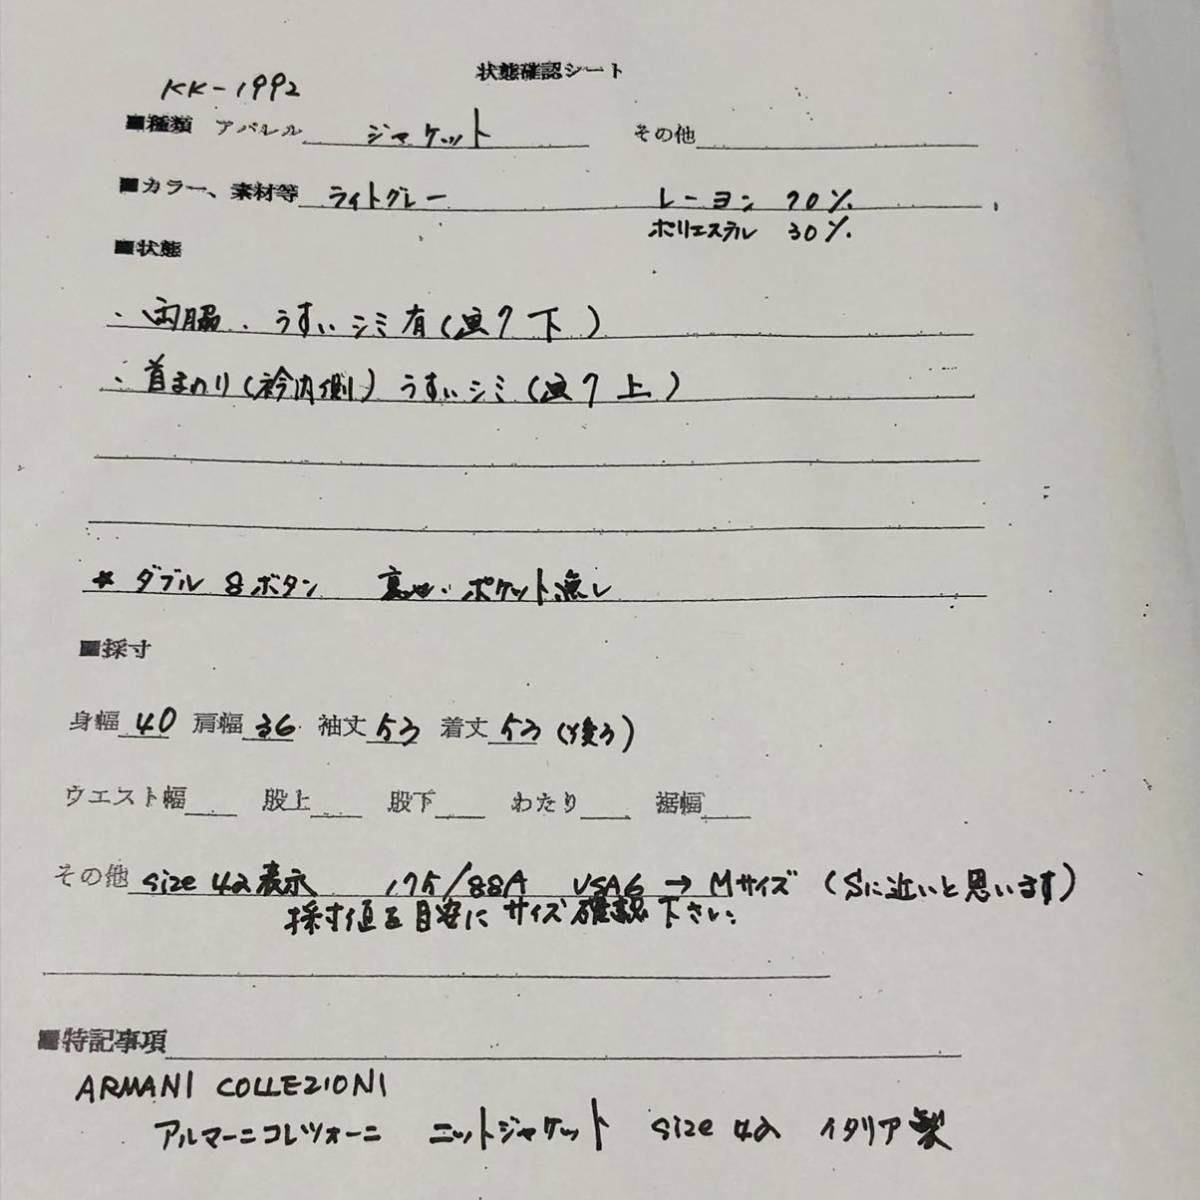 状態確認シート
KK-1992
■種類 アパレル ジャケット その他
■カラー、素材等 ライトグレー レーヨン 70%
ポリエステル 30%
■状態
・両脇、うすいシミ有(画7下)
・首まわり(衿内側)うすいシミ(画7上)
* ダブル 8ボタン 裏地・ポケット無し
■採寸
身幅 40 肩幅 36 袖丈 53 着丈 53 (後ろ)
ウエスト幅 股上 股下 わたり 裾幅
その他 size 42 表示 175/88A USA6 → Mサイズ (Sに近いと思います)
採寸値を目安にサイズ確認下さい。
■特記事項
ARMANI COLLEZIONI
アルマーニコレツォーニ ニットジャケット size 42 イタリア製